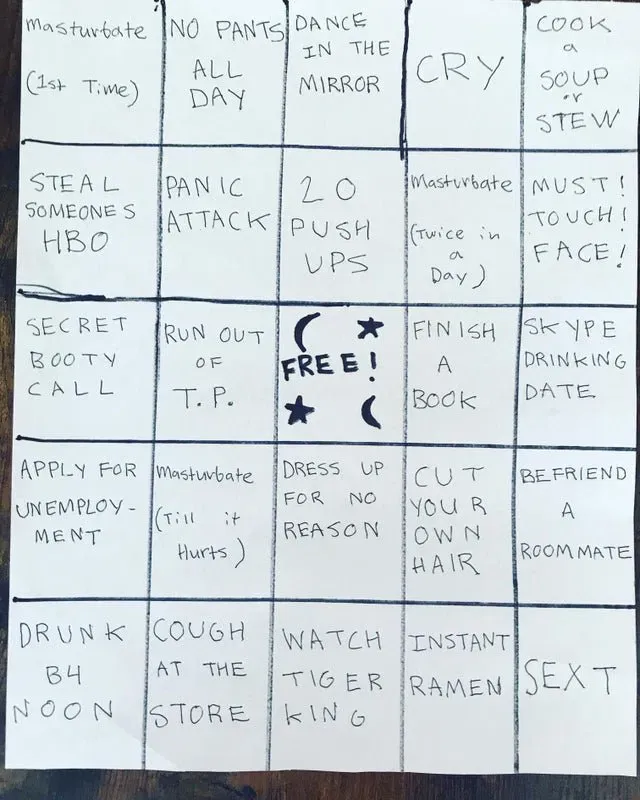 Masturbate
(1st Time)
NO PANTS
ALL
DAY
DANCE
IN THE
MIRROR
CRY
COOK
a
SOUP
or
STEW
STEAL
SOMEONES
HBO
PANIC
ATTACK
20
PUSH
UPS
Masturbate
(Twice in
a
Day)
MUST!
TOUCH!
FACE!
SECRET
BOOTY
CALL
RUN OUT
OF
T.P.
FREE!
FINISH
A
BOOK
SKYPE
DRINKING
DATE
APPLY FOR
UNEMPLOY-
MENT
Masturbate
(Till it
Hurts)
DRESS UP
FOR NO
REASON
CUT
YOUR
OWN
HAIR
BEFRIEND
A
ROOMMATE
DRUNK
B4
NOON
COUGH
AT THE
STORE
WATCH
TIGER
KING
INSTANT
RAMEN
SEXT